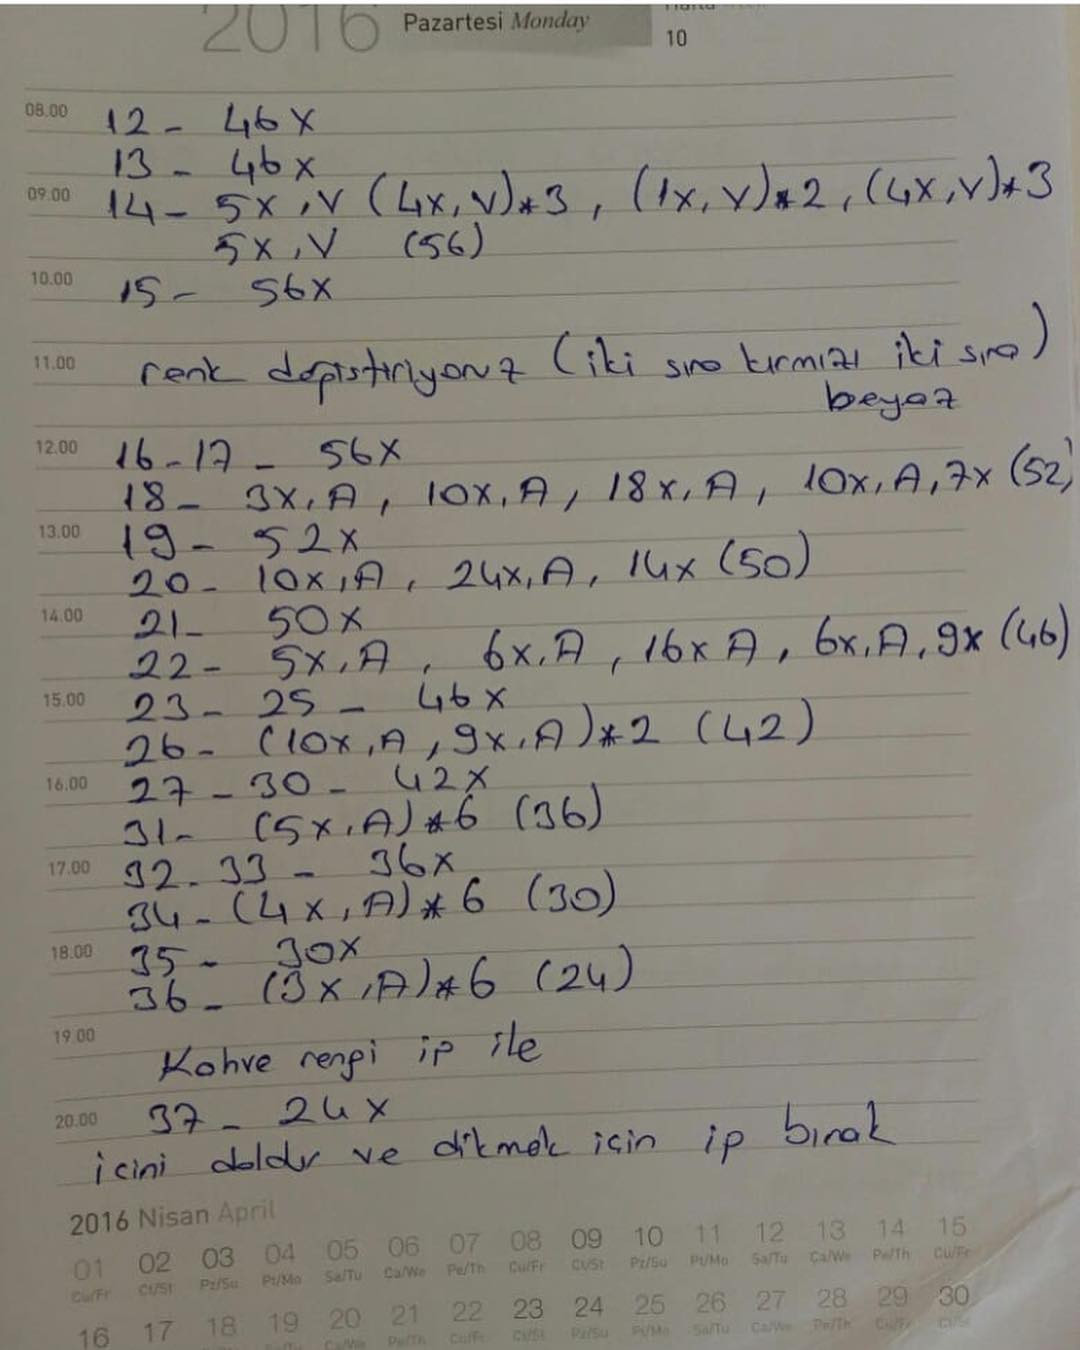 2016 Pazartesi Monday
10
08.00 12 - 46x
13 - 46x
09.00 14 - 5x, V (4x, V)*3, (1x, V)*2, (4x, V)*3
5x, V (56)
10.00 15 - 56x
11.00 renk değiştiriyoruz (iki sıra kırmızı iki sıra)
beyaz
12.00 16-17 - 56x
18 - 3x, A, 10x, A, 18x, A, 10x, A, 7x (52)
13.00 19 - 52x
20 - 10x, A, 24x, A, 14x (50)
14.00 21 - 50x
22 - 5x, A, 6x, A, 16x A, 6x, A, 9x (46)
15.00 23 - 25 - 46x
26 - (10x, A, 9x, A)*2 (42)
16.00 27 - 30 - 42x
31 - (5x, A)*6 (36)
17.00 32 - 33 - 36x
34 - (4x, A)*6 (30)
18.00 35 - 30x
36 - (3x, A)*6 (24)
19.00
Kahve rengi ip ile
20.00 37 - 24x
içini doldur ve dikmek için ip bırak
2016 Nisan April
01 02 03 04 05 06 07 08 09 10 11 12 13 14 15
Cu/Fr Ct/St Pz/Su Pt/Mo Sa/Tu Ça/We Pe/Th Cu/Fr Ct/St Pz/Su Pt/Mo Sa/Tu Ça/We Pe/Th Cu/Fr
16 17 18 19 20 21 22 23 24 25 26 27 28 29 30
Ça/We Pe/Th Cu/Fr Ct/St Pz/Su Pt/Mo Sa/Tu Ça/We Pe/Th Cu/Fr Ct/St